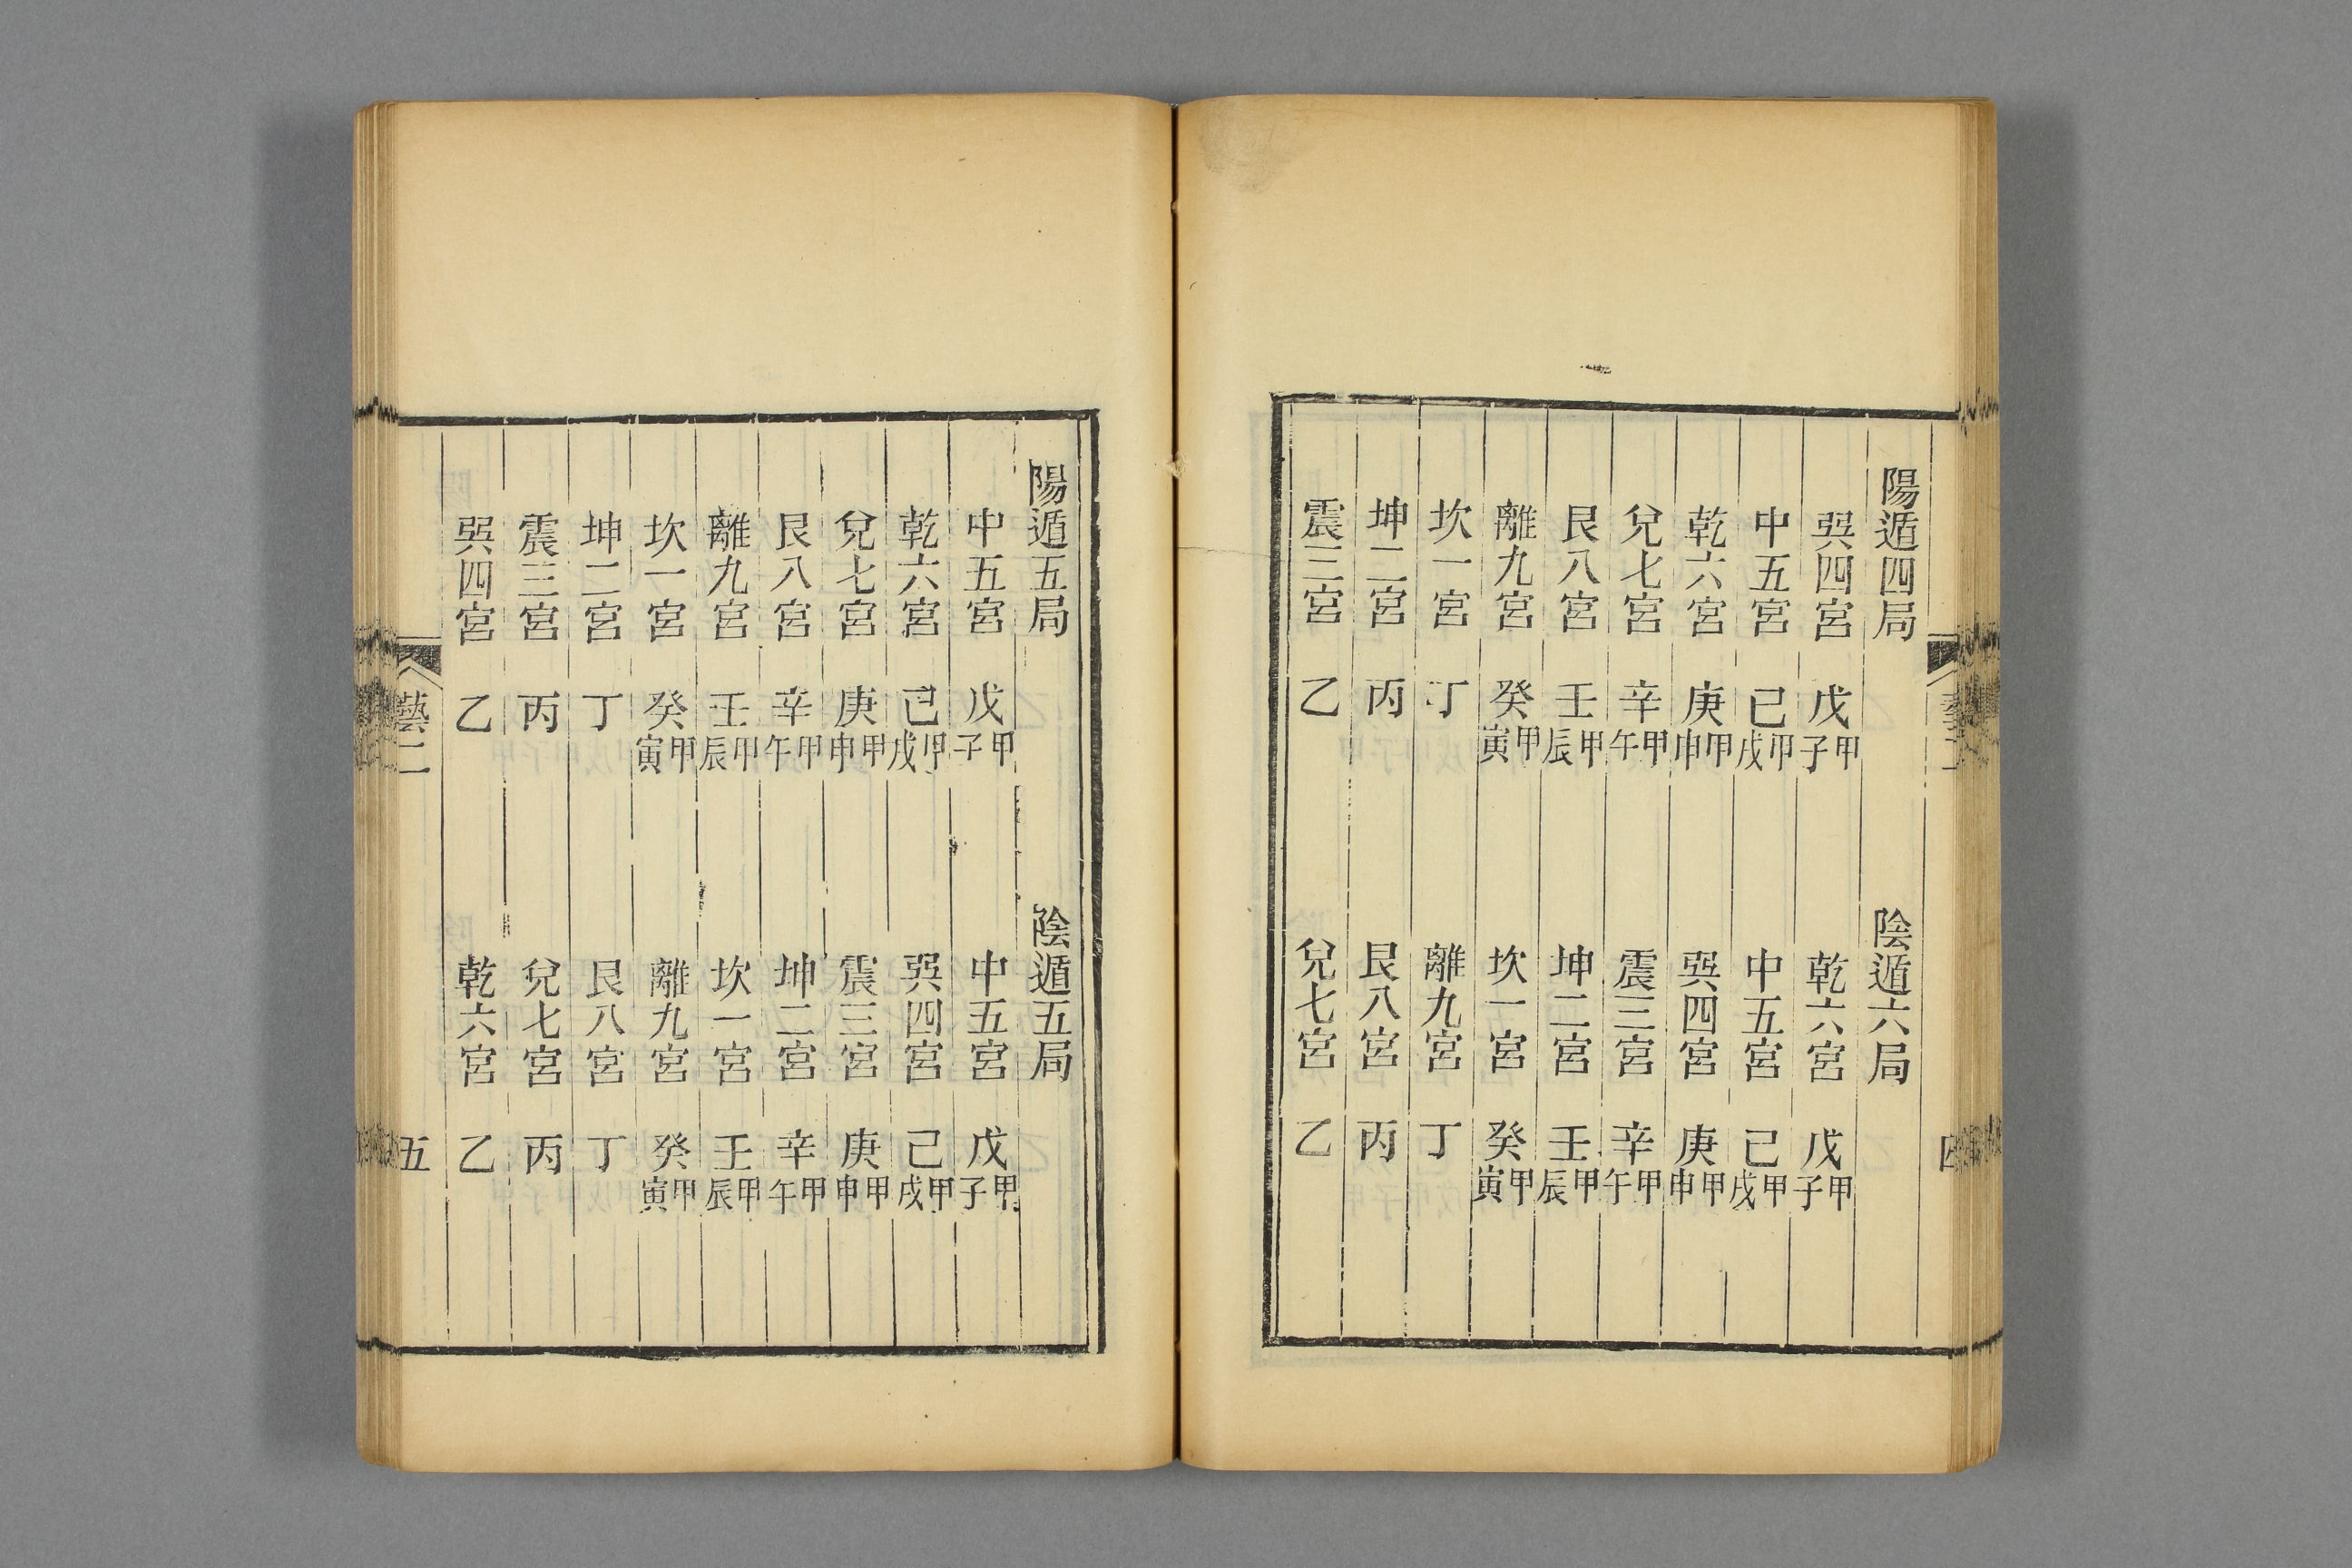 陽遁四局　陰遁六局
巽四宮　戊甲子　乾六宮　戊甲子
中五宮　己甲戌　中五宮　己甲戌
乾六宮　庚甲申　巽四宮　庚甲申
兌七宮　辛甲午　震三宮　辛甲午
艮八宮　壬甲辰　坤二宮　壬甲辰
離九宮　癸甲寅　坎一宮　癸甲寅
坎一宮　丁　離九宮　丁
坤二宮　丙　艮八宮　丙
震三宮　乙　兌七宮　乙
陽遁五局　陰遁五局
中五宮　戊甲子　中五宮　戊甲子
乾六宮　己甲戌　巽四宮　己甲戌
兌七宮　庚甲申　震三宮　庚甲申
艮八宮　辛甲午　坤二宮　辛甲午
離九宮　壬甲辰　坎一宮　壬甲辰
坎一宮　癸甲寅　離九宮　癸甲寅
坤二宮　丁　艮八宮　丁
震三宮　丙　兌七宮　丙
巽四宮　乙　乾六宮　乙
藝二　五